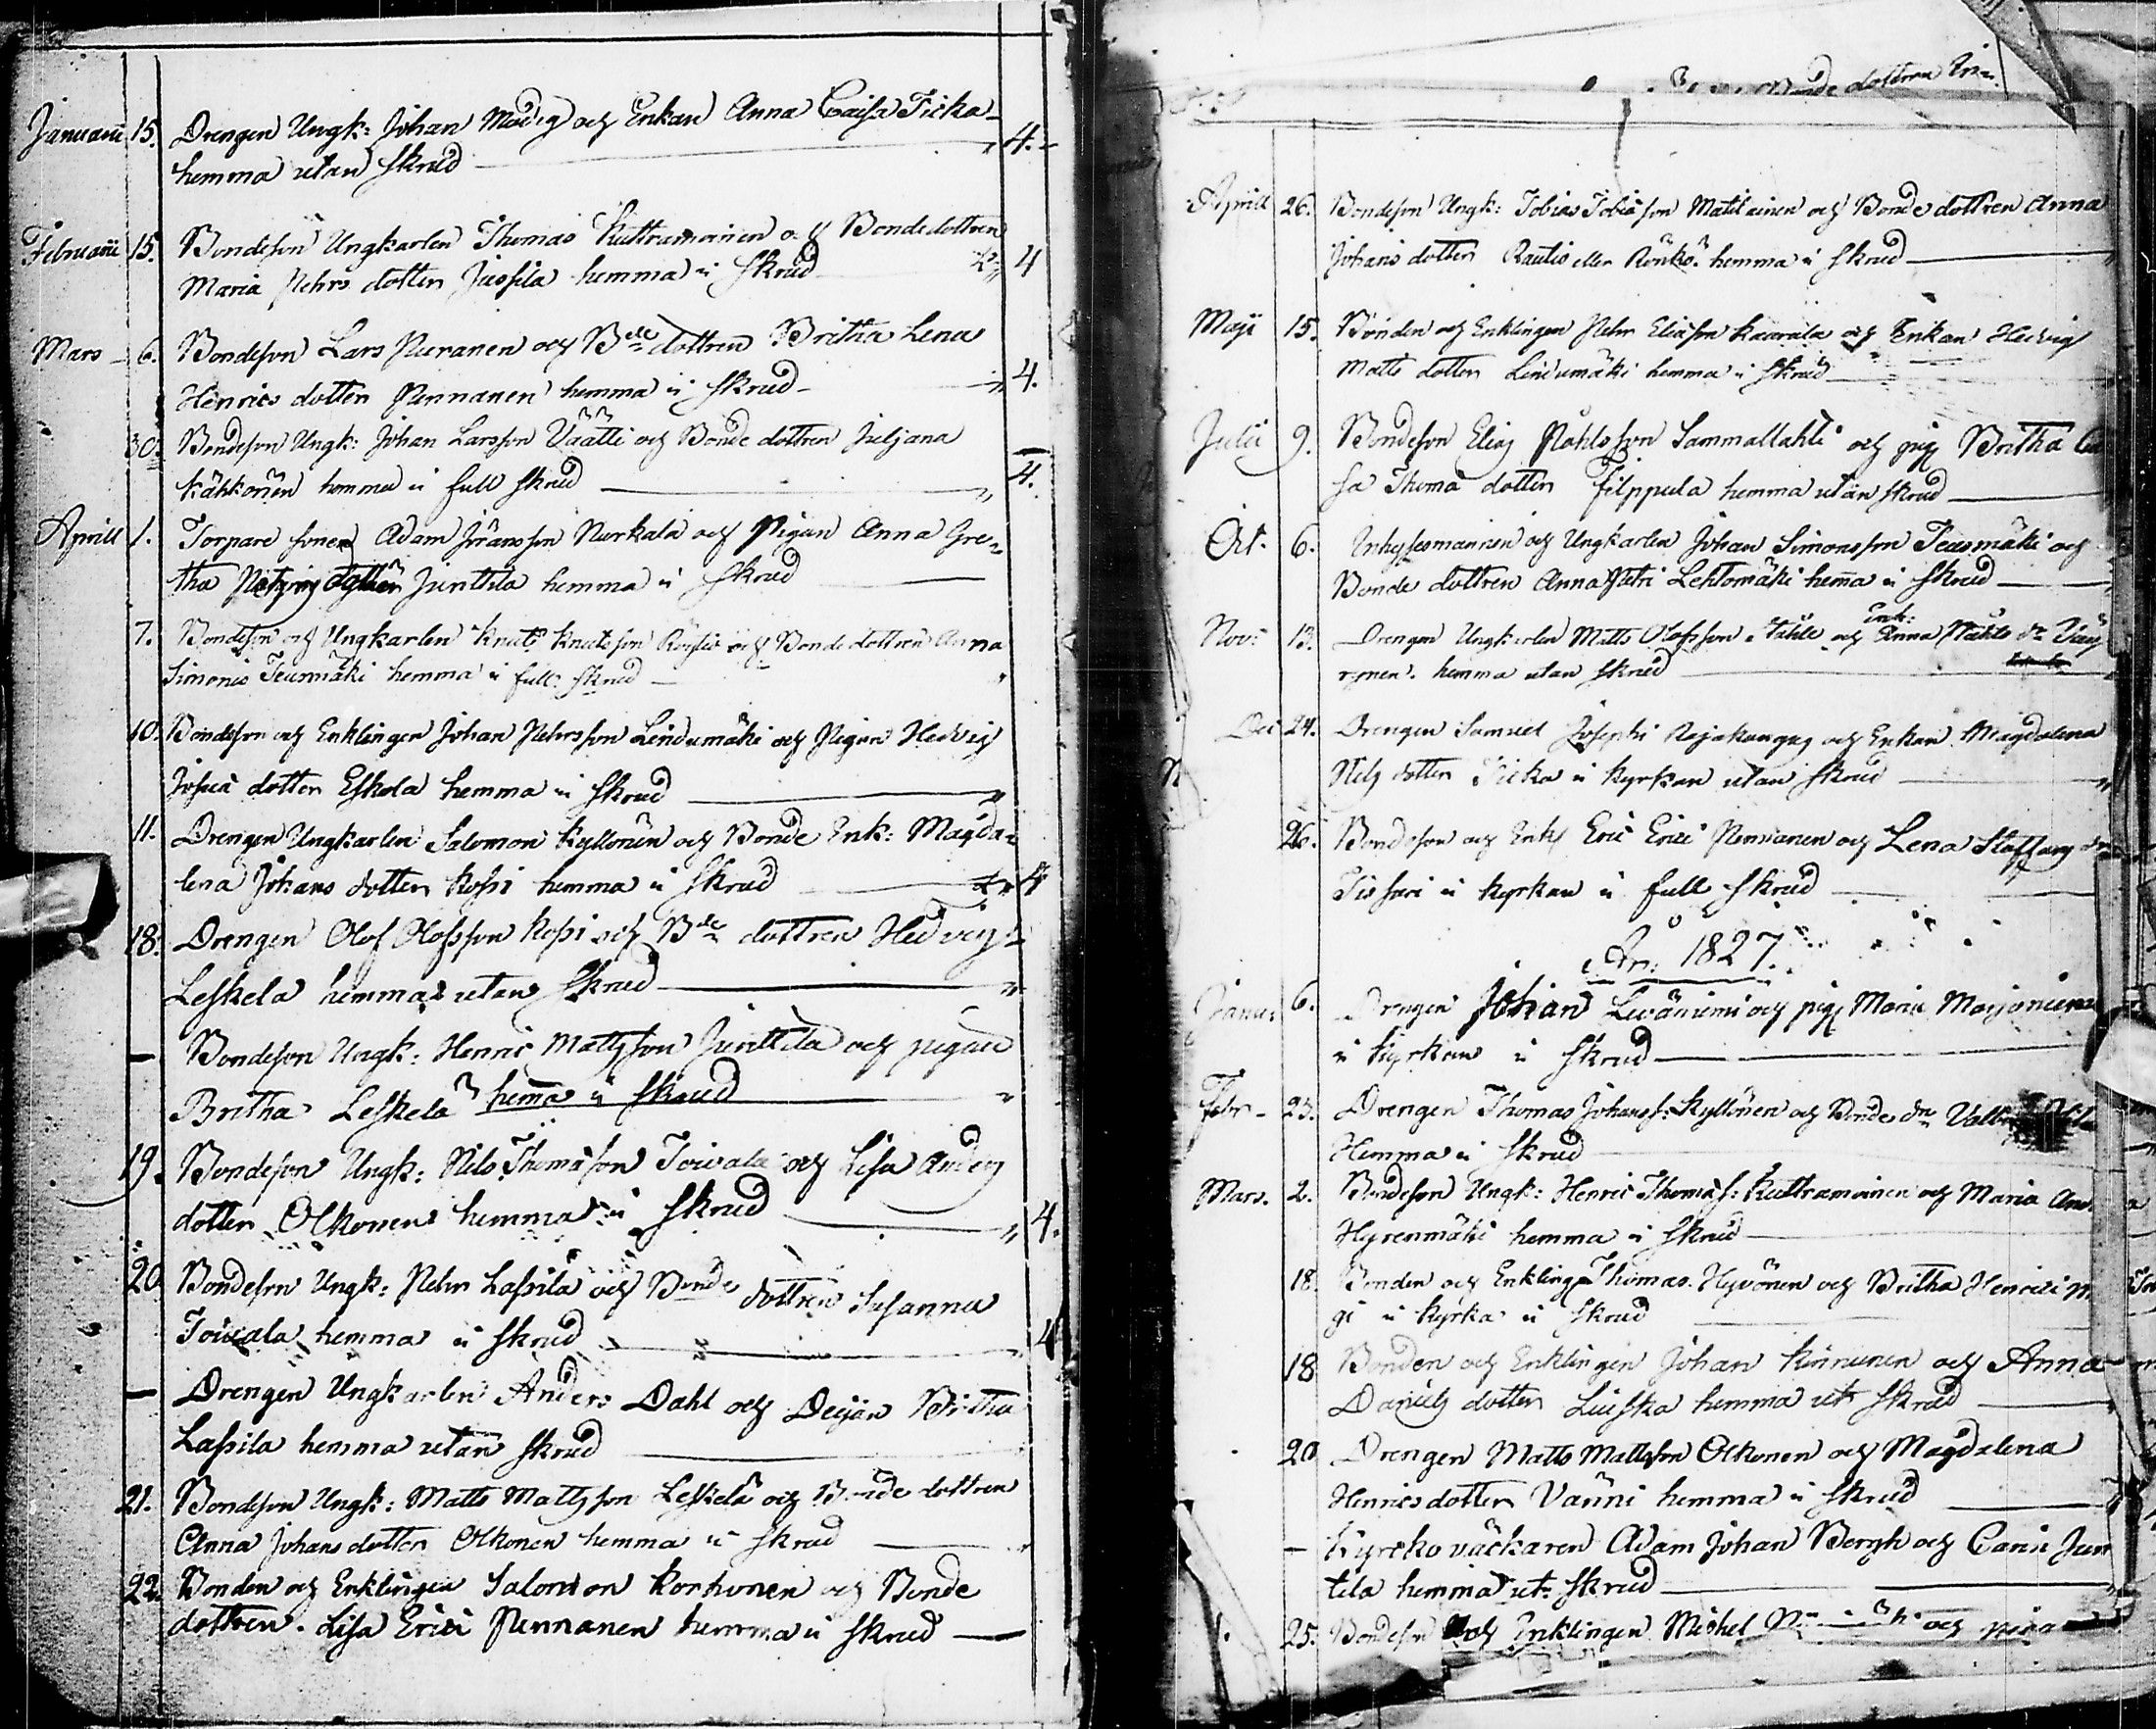 Januarii 15. Drengen Ungk: Johan Modig och Enkan Anna Caisa Ticka 4.
hemma utan Skrud
Februarii 15. Bondeson Ungkarlen Thomas Kuttramoinen och Bondedottren
Maria Pehrs dotter Jussila hemma i Skrud 4
Mars 6. Bondeson Lars Puranen och Bde dottren Britha Lena
Henrics dotter Pennanen hemma i Skrud 4.
30. Bondeson Ungk: Johan Larsson Väätti och Bonde dottren Juljana
Kähkönen hemma i full skrud 4.
Aprill 1. Torpare sonen Adam Jöransson Nurkala och Pigan Anna Gre=
tha dotter Junttila hemma i Skrud
7. Bondeson och Ungkarlen Knut Knutsson och Bondedottren Anna
Simonis Teurmäki hemma i full Skrud
10. Bondeson och Enklingen Johan Pehrsson Lindumäki och Pigan Hedvig
Josua dotter Eskola hemma i Skrud
11. Drengen Ungkarlen Salomon Kyllönen och Bonde Enk: Magda=
lena Johans dotter Kossi hemma i Skrud 4
18. Drengen Olof Olofsson Kossi och Bde dottren Hedvig
Leskela hemma utan Skrud
— Bondeson Ungk: Henric Mattsson Junttila och pigan
Britha Leskelä hemma i Skrud
19. Bondeson Ungk: Nils Thomasson Toivala och Lisa Anders
dotter Olkonen hemma i Skrud 4.
20 Bondeson Ungk: Pehr Lassila och Bonde dottren Susanna
Toivala hemma i Skrud 4
— Drengen Ungkarlen Anders Dahl och Deijan Britha
Lassila hemma utan Skrud
21. Bondeson Ungk: Matts Mattsson Leskelä och Bonde dottren
Anna Johans dotter Olkonen hemma i Skrud
22. Bonden och Enklingen Salomon Korhonen och Bonde
dottren Lisa Erici Pennanen hemma i Skrud
Bonde dottren
Aprill 26. Bondeson Ungk: Tobias Tobiasson Matilainen och Bonde dottren Anna
Johans dotter Rautio eller Rönkö hemma i Skrud
Maji 15. Bonden och Enklingen Pehr Eliasson Kaarala och Enkan Hedvig
Matts dotter Lindumäki hemma i Skrud
Julii 9. Bondeson Elias Påhlsson Sammallahti och pig Britha
sa Thoma dotter Filppula hemma utan Skrud
Oct. 6. Inhysesmannen och Ungkarlen Johan Simonsson Teermäki och
Bonde dottren Anna Petri Lehtomäki hemma i Skrud
Enk:
Nov: 13. Drengen Ungkarlen Matts Olofsson Ståhle och Anna
rynen hemma utan Skrud
24. Drengen Samuel Josephi Rajakangas och Enkan Magdalena
Nils dotter Ticka i Kyrkan utan Skrud
26. Bondeson och Enkl Eric Erici Pennanen och Lena Staffans
Tissari i Kyrkan i full skrud
År: 1827.
Janu: 6. Drengen Johan Leväniemi och pig Maria Marjoniemi
i Kyrkan i Skrud
Febr 23. Drengen Thomas Johans: Kyllönen och Bonde dn
Hemma i Skrud
Mars. 2. Bondeson Ungk: Henric Thomas: Kuttramoinen och Maria
Hyrenmäki hemma i Skrud
18. Bonden och Enkling Thomas Hyvönen och Britha Henrici
gi i Kyrka i Skrud
18 Bonden och Enklingen Johan Kinnunen och Anna
Daniels dotter Liuska hemma ut Skrud
20 Drengen Matts Mattsson Olkonen och Magdalena
Henricsdotter Vänni hemma i Skrud
— Kyrckoväckaren Adam Johan Bergh och Carin Jun
tila hemma ut: Skrud
25. Bondeson och Enklingen Michel och